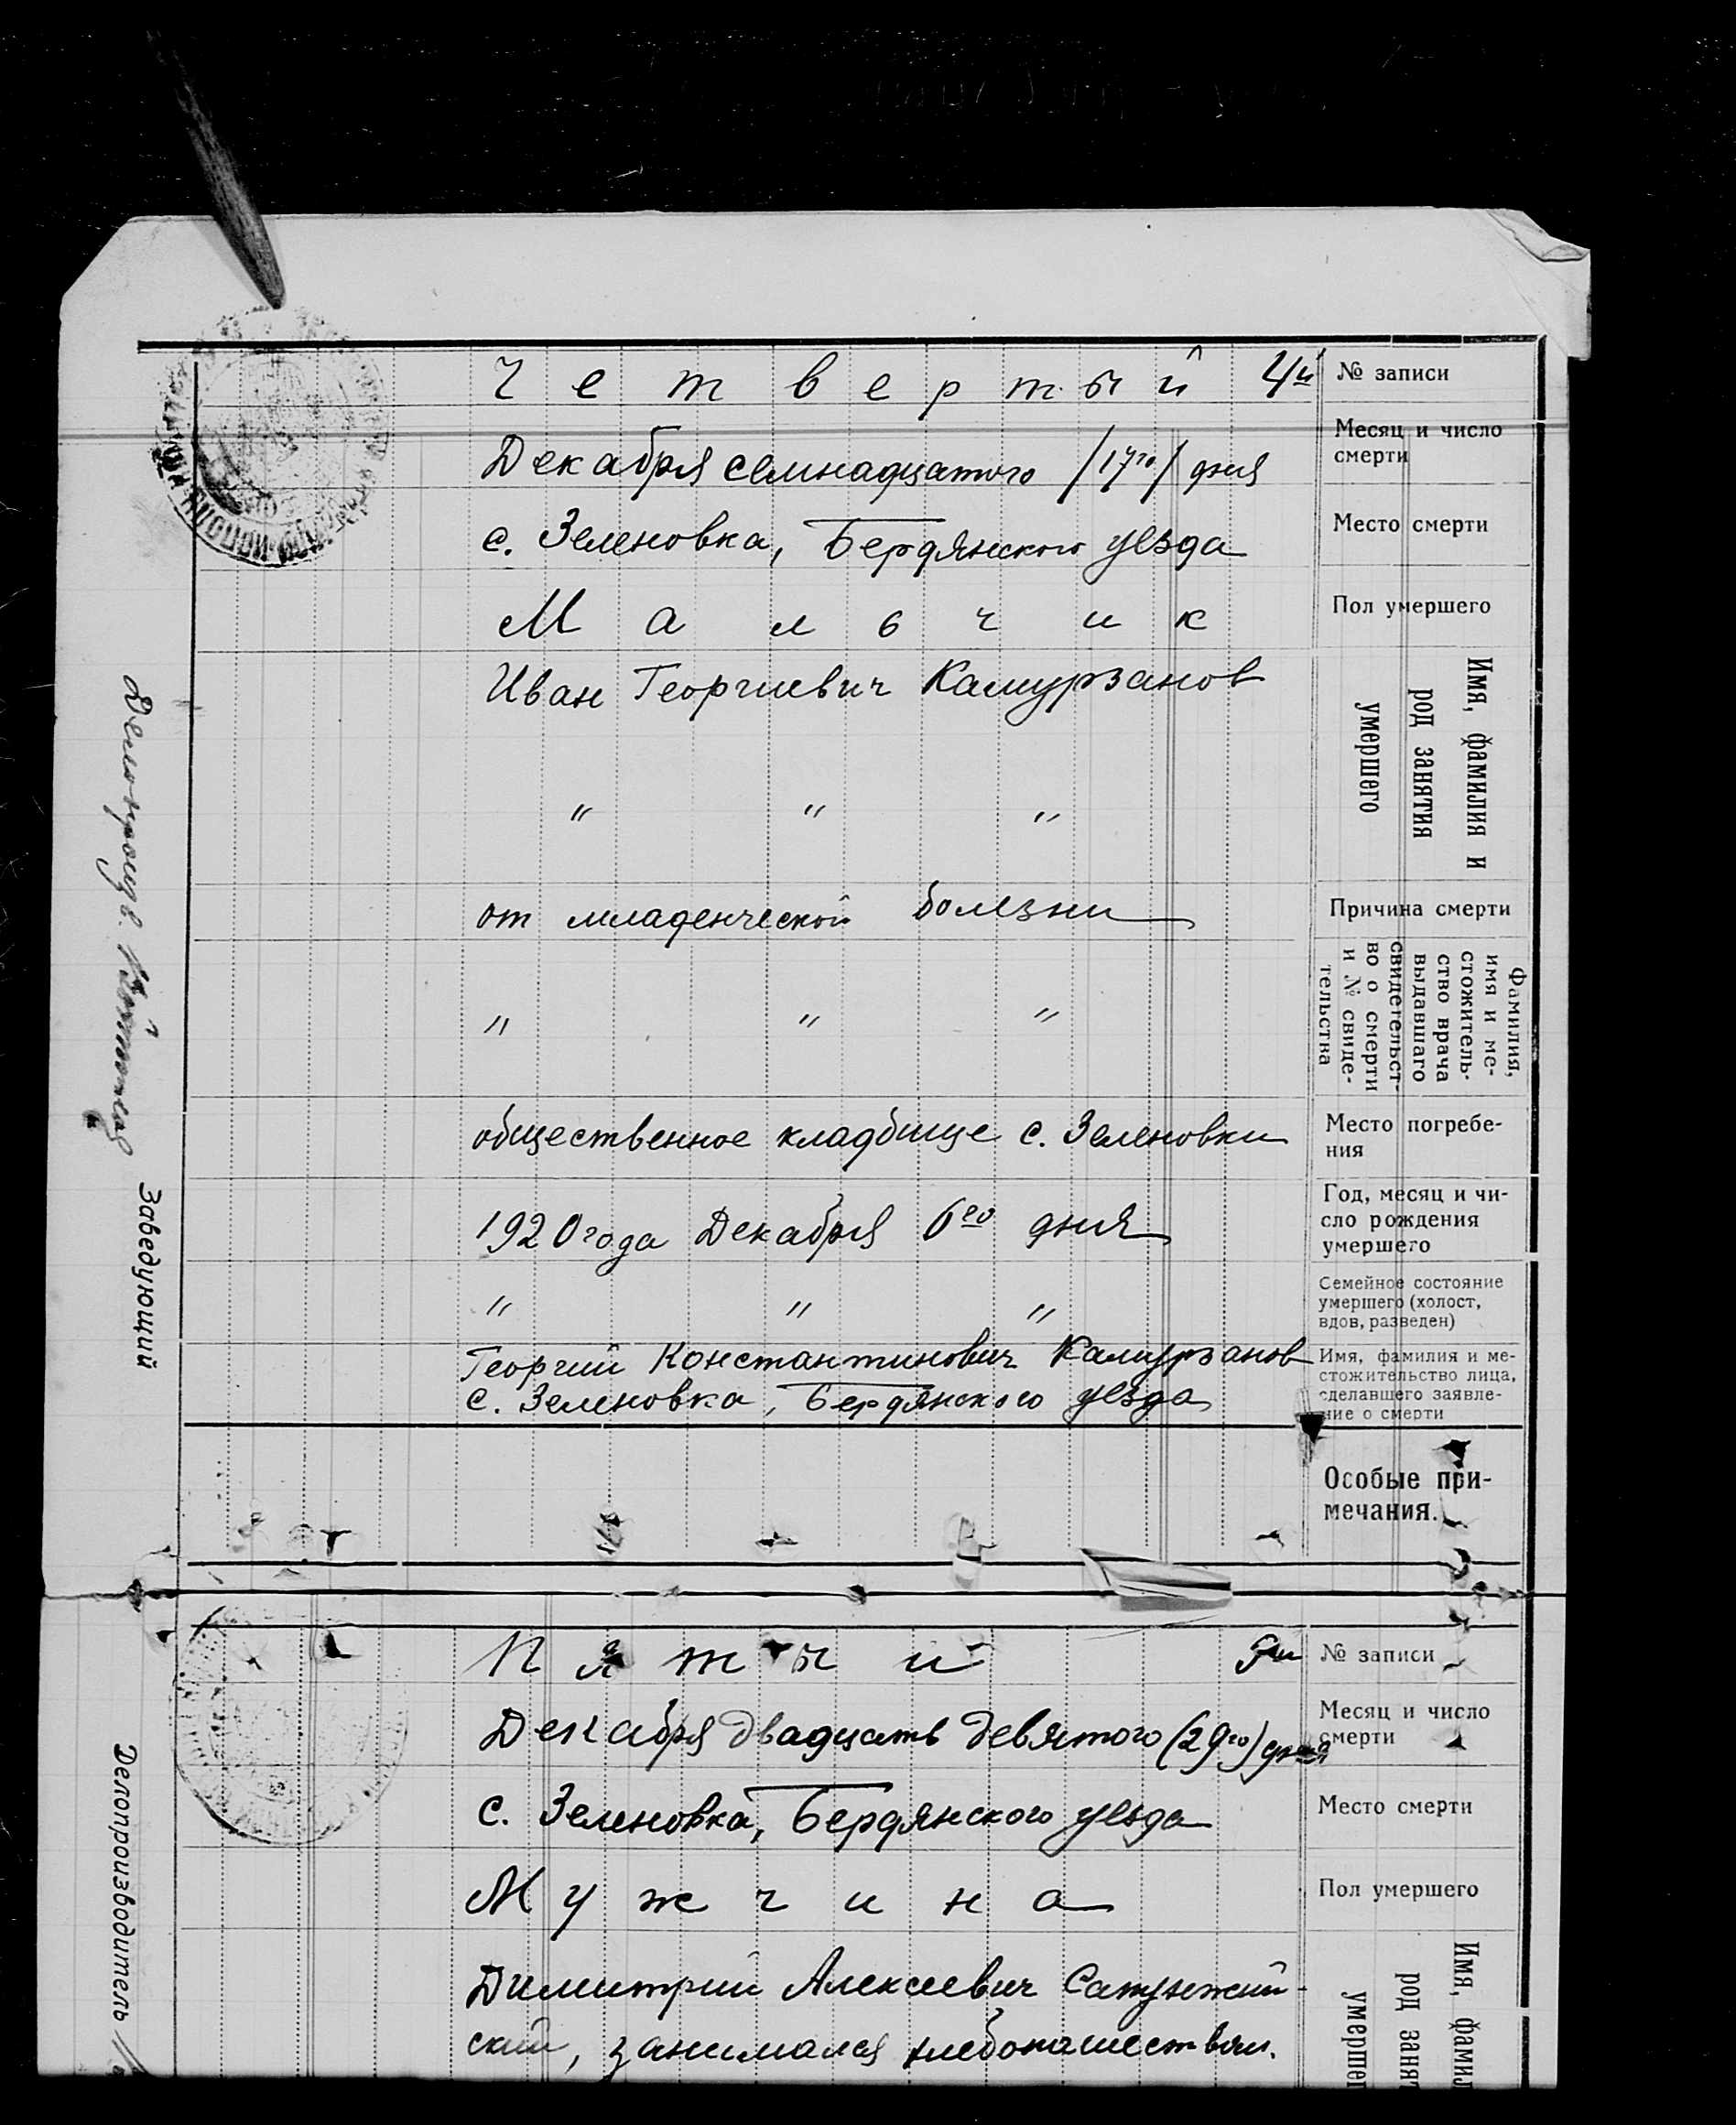 Четвертый 4й
№ записи
Декабря семнадцатого /17го/ дня
Месяц и число
смерти
с. Зеленовка, Бердянского уезда
Место смерти
Мальчик
Пол умершего
Иван Георгиевич Камурзанов
" " "
Имя, фамилия и
род занятия
умершего
от младенческой болезни
Причина смерти
" " "
Фамилия,
имя и ме-
стожитель-
ство врача
выдавшаго
свидетельст-
во о смерти
и № свиде-
тельства
общественное кладбище с. Зеленовки
Место погребе-
ния
1920 года Декабря 6го дня
Год, месяц и чи-
сло рождения
умершего
" " "
Семейное состояние
умершего (холост,
вдов, разведен)
Георгий Константинович Камурзанов
с. Зеленовка, Бердянского уезда
Имя, фамилия и ме-
стожительство лица,
сделавшего заявле-
ние о смерти
Особые при-
мечания.
Заведующий
Делопроизв.
Пятый 5й
№ записи
Декабря двадцать девятого (29го) дня
Месяц и число
смерти
с. Зеленовка, Бердянского уезда
Место смерти
Мужчина
Пол умершего
Димитрий Алексеевич
ский, занимался хлебопашеством.
Имя, фамил
род заня
умершег
Делопроизводитель